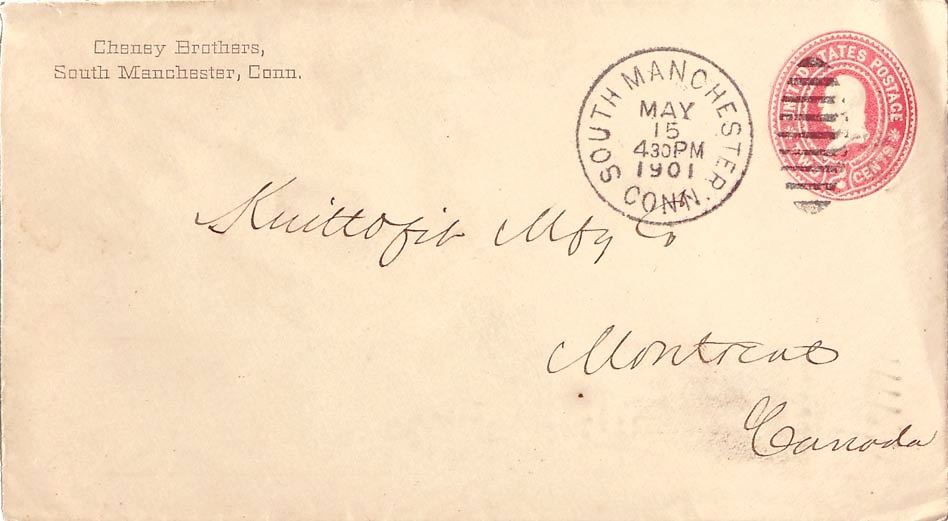 Cheney Brothers,
South Manchester, Conn.
SOUTH MANCHESTER
MAY
15
430PM
1901
CONN.
UNITED STATES POSTAGE
TWO 2 CENTS
Knittofit Mfg Co
Montreal
Canada